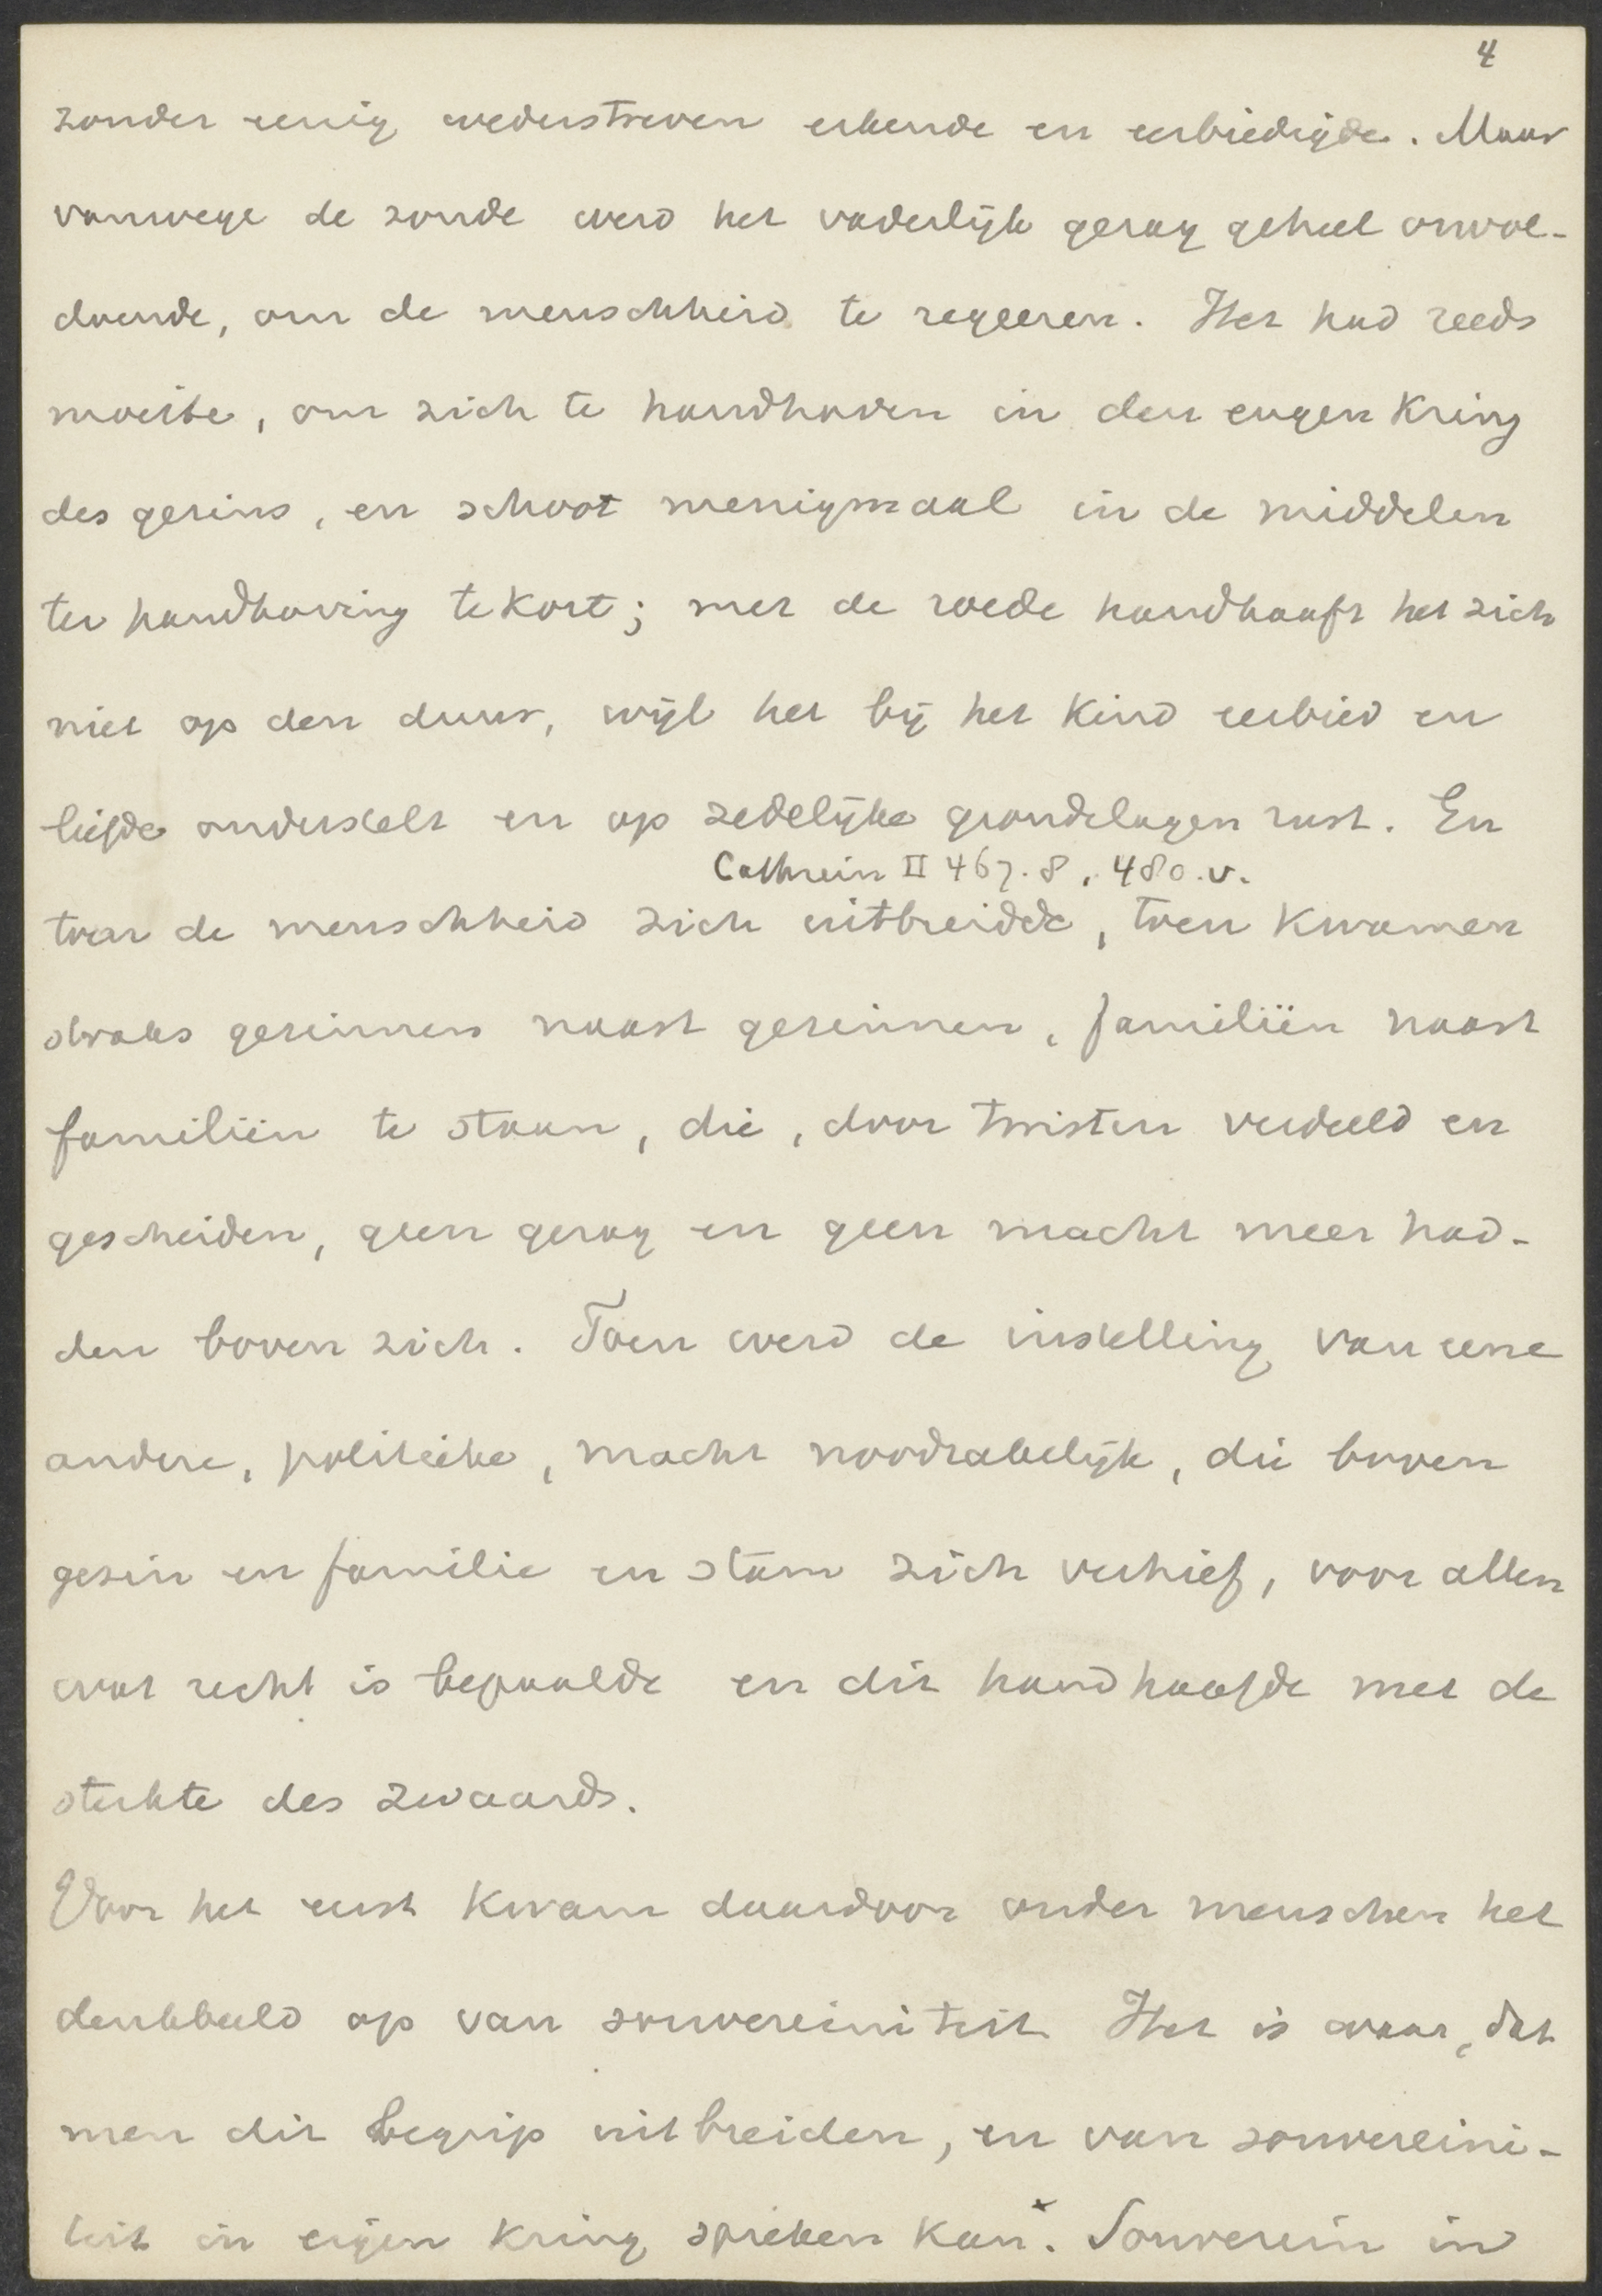 4
zonder eenig wederstreven erkende en eerbiedigde. Maar
vanwege de zonde werd het vaderlijk gezag geheel onvol-
doende, om de menschheid te regeeren. Het had reeds
moeite, om zich te handhaven in den engen kring
des gezins, en schoot menigmaal in de middelen
ter handhaving tekort; met de roede handhaaft het zich
niet op den duur, wijl het bij het kind eerbied en
liefde onderstelt en op zedelijke grondslagen rust. En
Cathrein II 467.8, 480.v.
toen de menschheid zich uitbreidde, toen kwamen
straks gezinnen naast gezinnen, familiën naast
familiën te staan, die, door twisten verdeeld en
gescheiden, geen gezag en geen macht meer had-
den boven zich. Toen werd de instelling van eene
andere, politieke, macht noodzakelijk, die boven
gezin en familie en stam zich verhief, voor allen
wat recht is bepaalde en dit handhaafde met de
sterkte des zwaards.
Voor het eerst kwam daardoor onder menschen het
denkbeeld op van souvereiniteit. Het is waar, dat
men dit begrip uitbreiden, en van souvereini-
teit in eigen kring spreken kan.ˣ Souverein in